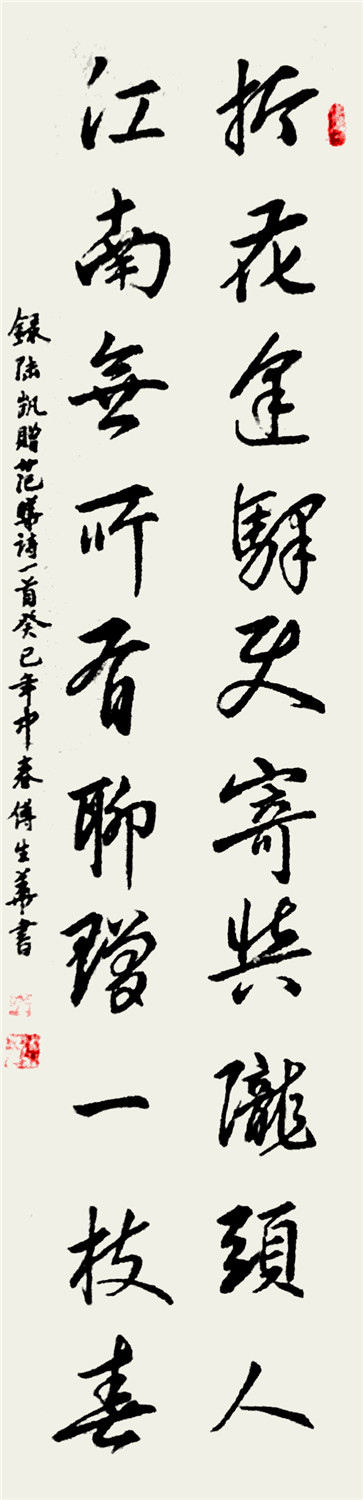 折花逢驛使寄與隴頭人
江南無所有聊贈一枝春
録陸凱贈范曄詩一首癸巳年中春傅生華書